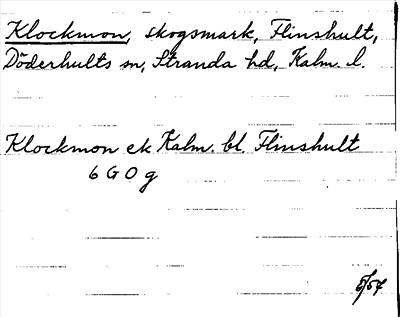 Klockmon, skogsmark, Flinshult,
Döderhults sn, Stranda hd, Kalm. l.
Klockmon ek Kalm. bl Flinshult
6 G O g